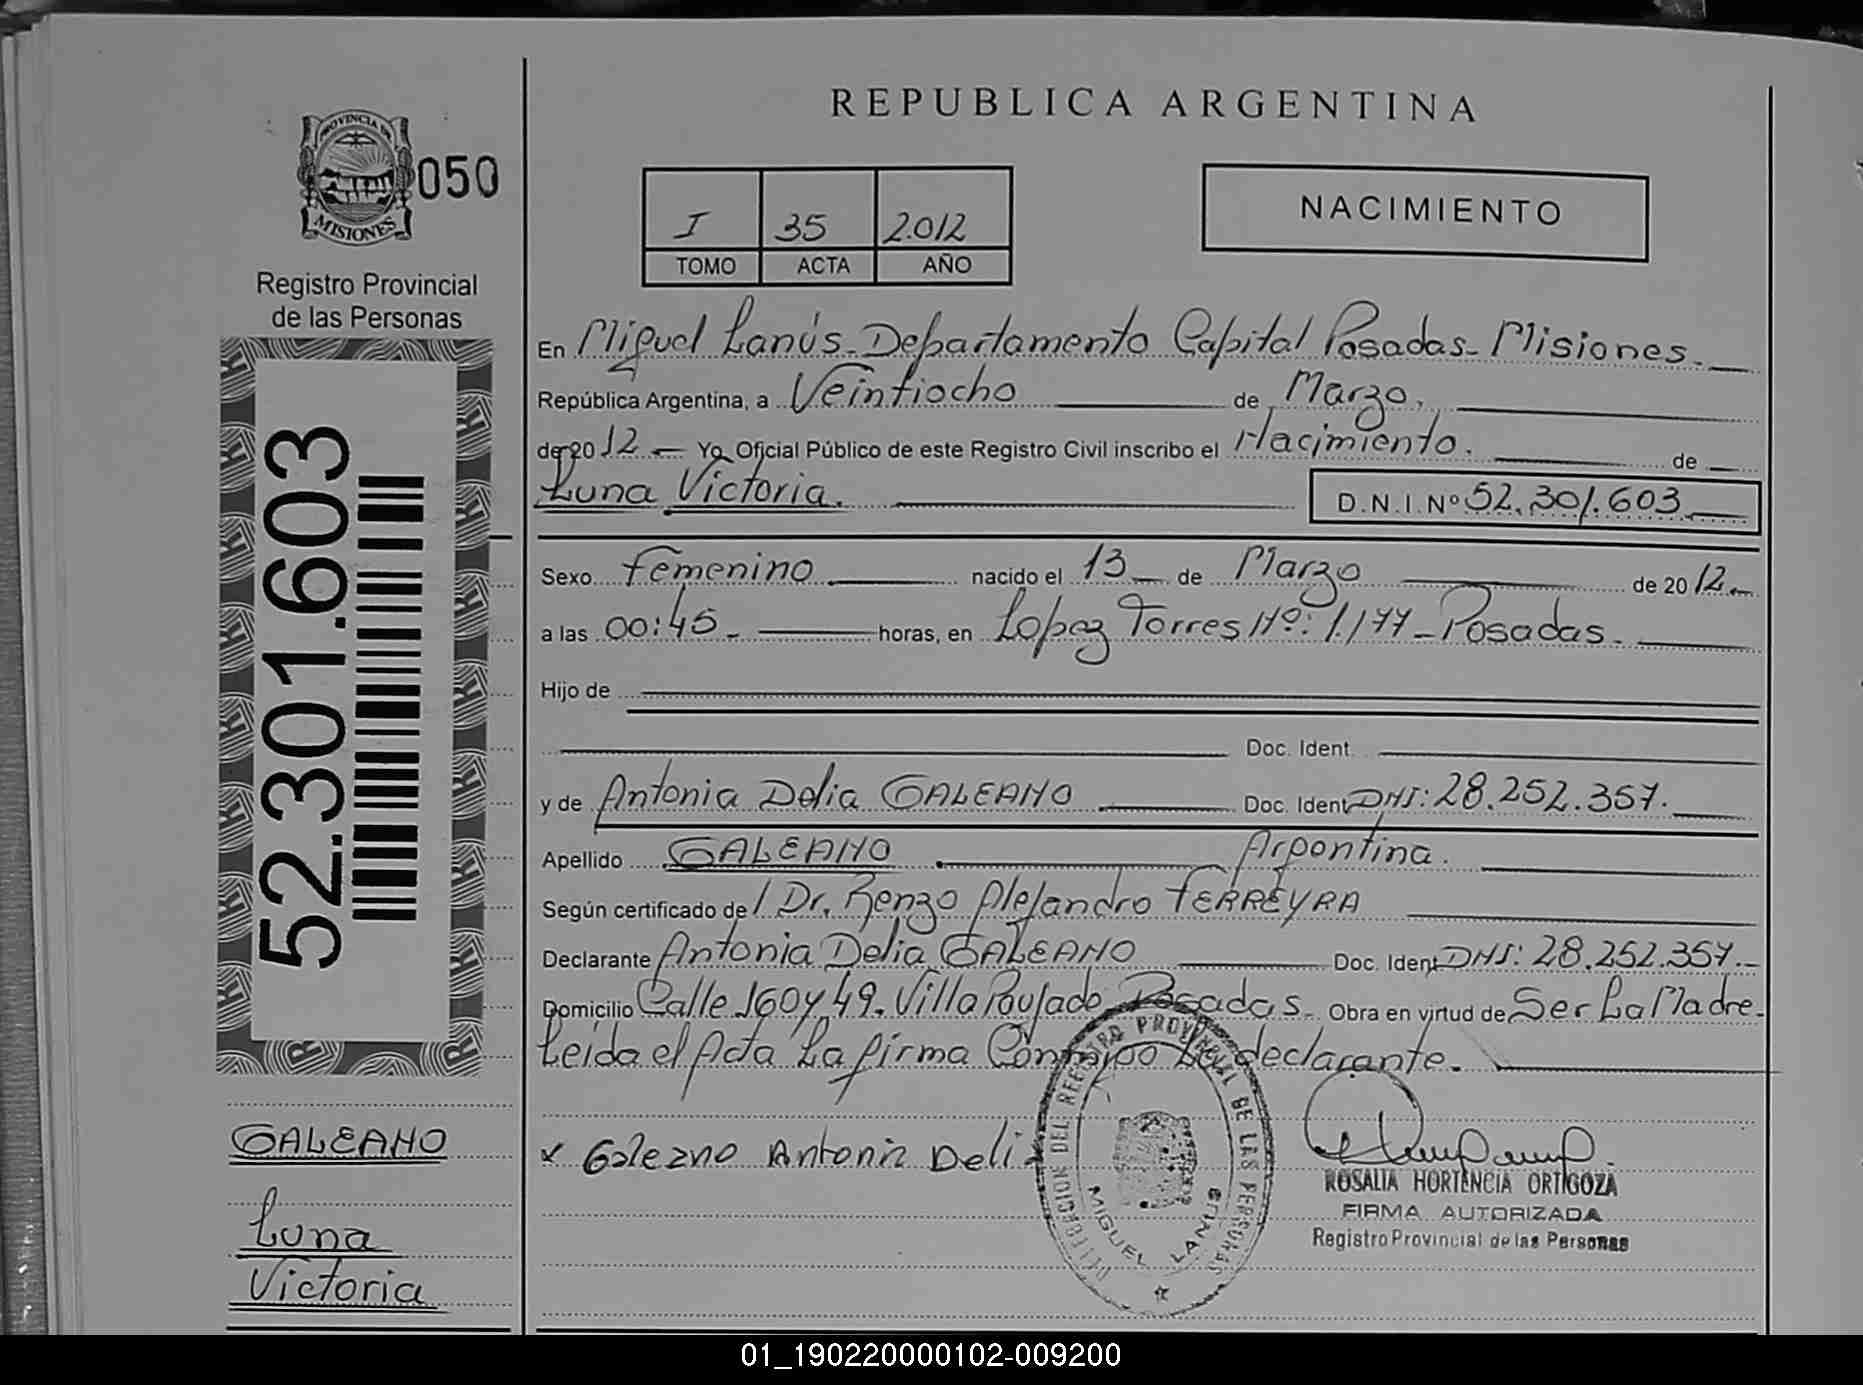 REPUBLICA ARGENTINA
PROVINCIA DE
MISIONES
050
Registro Provincial
de las Personas
I 35 2.012
TOMO ACTA AÑO
NACIMIENTO
En Miguel Lanús-Departamento Capital Posadas-Misiones.
República Argentina, a Veintiocho de Marzo.
de 2012 Yo Oficial Público de este Registro Civil inscribo el Nacimiento. de
Luna Victoria. D.N.I.Nº 52.301.603
52.301.603
Sexo Femenino nacido el 13 de Marzo de 2012
a las 00:45 horas, en Lopez Torres Nº: 1.177-Posadas.
Hijo de
Doc. Ident.
y de Antonia Delia GALEANO Doc. Ident DNI: 28.252.357.
Apellido GALEANO Argentina.
Según certificado del Dr. Renzo Alejandro FERREYRA
Declarante Antonia Delia GALEANO Doc. Ident DNI: 28.252.357.-
Domicilio Calle 160 y 49. Villa Posadas. Obra en virtud de Ser La Madre.
Leida el Acta La firma Conmigo La declarante.
x Galeano Antonia Delia
DELEGACION DEL REGISTRO PROVINCIAL DE LAS PERSONAS
MIGUEL LANUS
ROSALIA HORTENCIA ORTIGOZA
FIRMA AUTORIZADA
Registro Provincial de las Personas
GALEANO
Luna
Victoria
01_190220000102-009200